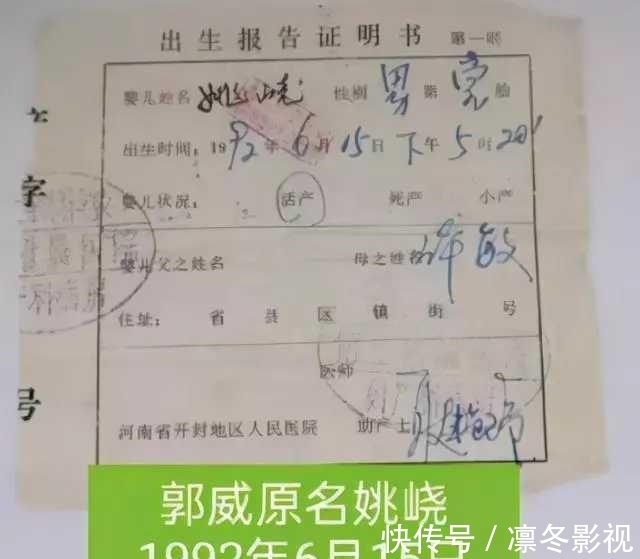 出生报告证明书 第一联
婴儿姓名 姚峣 性别 男 第 胎
出生时间:1992年6月15日下午5时20'
婴儿状况: 活产 死产 小产
婴儿父之姓名 母之姓名 许敏
住址: 省 县 区 镇 街 号
医师
河南省开封地区人民医院 助产士
字
号
郭威原名姚峣
1992年6月15日
快传号/凛冬影视